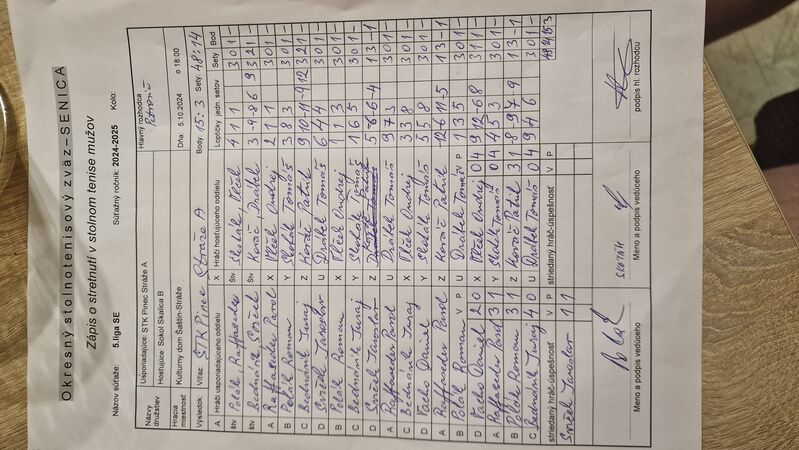 Okresný stolnotenisový zväz–SENICA
Zápis o stretnutí v stolnom tenise mužov
Názov súťaže: 5.liga SE Súťažný ročník: 2024-2025 Kolo:
Názvy družstiev Usporiadajúce: STK Pinec Stráže A Hlavný rozhodca
Hosťujúce: Sokol Skalica B
Hracia miestnosť Kulturny dom Šaštín-Stráže Dňa: 5.10.2024 o 18:00
Výsledok: Víťaz: STK Pinec Stráže A Body 15:3 Sety: 48:14
A Hráči usporiadajúceho oddielu X Hráči hosťujúceho oddielu Loptičky jedn. setov Sety Bod
štv Polák, Raffaseder štv Skoták Vlček 4 1 1 3 0 1 –
štv Bednárik Sojček štv Kovác, Drábek 3 -9 -8 6 9 3 2 1 –
A Raffaseder Pavol X Vlček Ondrej 2 1 1 3 0 1 –
B Polák Roman Y Skoták Tomáš 3 8 3 3 0 1 –
C Bednárik Juraj Z Kovác Patrik 9 10 -11 -9 12 3 2 1 –
D Sojček Jaroslav U Drábek Tomáš 6 4 4 3 0 1 –
B Polák Roman X Vlček Ondrej 1 1 3 3 0 1 –
C Bednárik Juraj Y Skoták Tomáš 1 6 5 3 0 1 –
D Sojček Jaroslav Z 5 -6 -6 -4 1 3 – 1
A Raffaseder Pavol U Drábek Tomáš 9 7 3 3 0 1 –
C Bednárik Juraj X Vlček Ondrej 3 3 8 3 0 1 –
D Vacho Daniel Y Skoták Tomáš 5 5 8 3 0 1 –
A Raffaseder Pavol Z Kovác Patrik -12 -6 11 -5 1 3 – 1
B Polák Roman V P U Drábek Tomáš V P 1 3 5 3 0 1 –
D Vacho Daniel 2 0 X Vlček Ondrej 0 4 9 -12 -6 8 3 1 1 –
A Raffaseder Pavol 3 1 Y Skoták Tomáš 0 4 4 5 3 3 0 1 –
B Polák Roman 3 1 Z Kovác Patrik 3 1 -8 9 -7 -9 1 3 – 1
C Bednárik Juraj 4 0 U Drábek Tomáš 0 4 9 4 6 3 0 1 –
striedaný hráč-úspešnosť V P striedaný hráč-úspešnosť V P 48 14 15 3
Sojček Jaroslav 1 1
SKOTÁK
Meno a podpis vedúceho Meno a podpis vedúceho podpis hl. rozhodcu